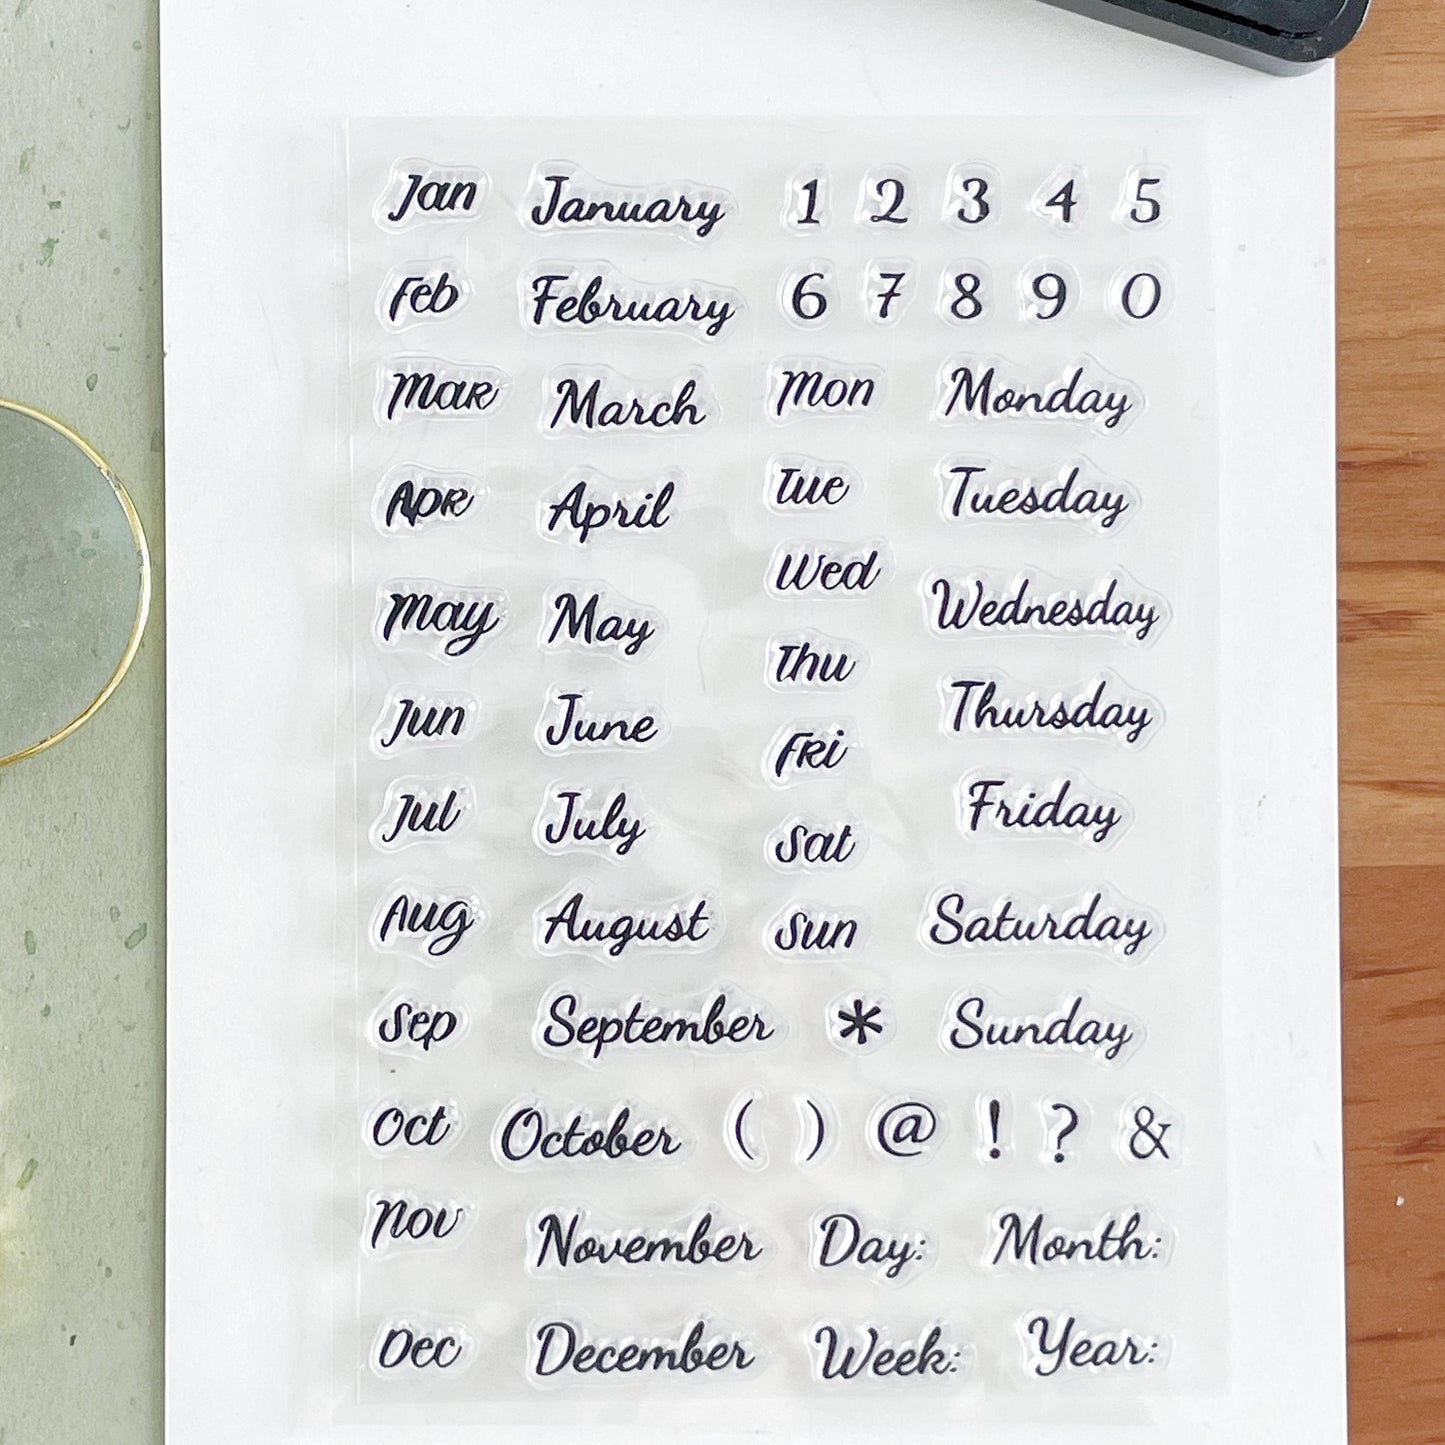 Jan January 1 2 3 4 5
Feb February 6 7 8 9 0
Mar March Mon Monday
Apr April Tue Tuesday
Wed
May May Wednesday
Thu
Jun June Thursday
Fri
Jul July Friday
Sat
Aug August Sun Saturday
Sep September * Sunday
Oct October ( ) @ ! ? &
Nov November Day: Month:
Dec December Week: Year: